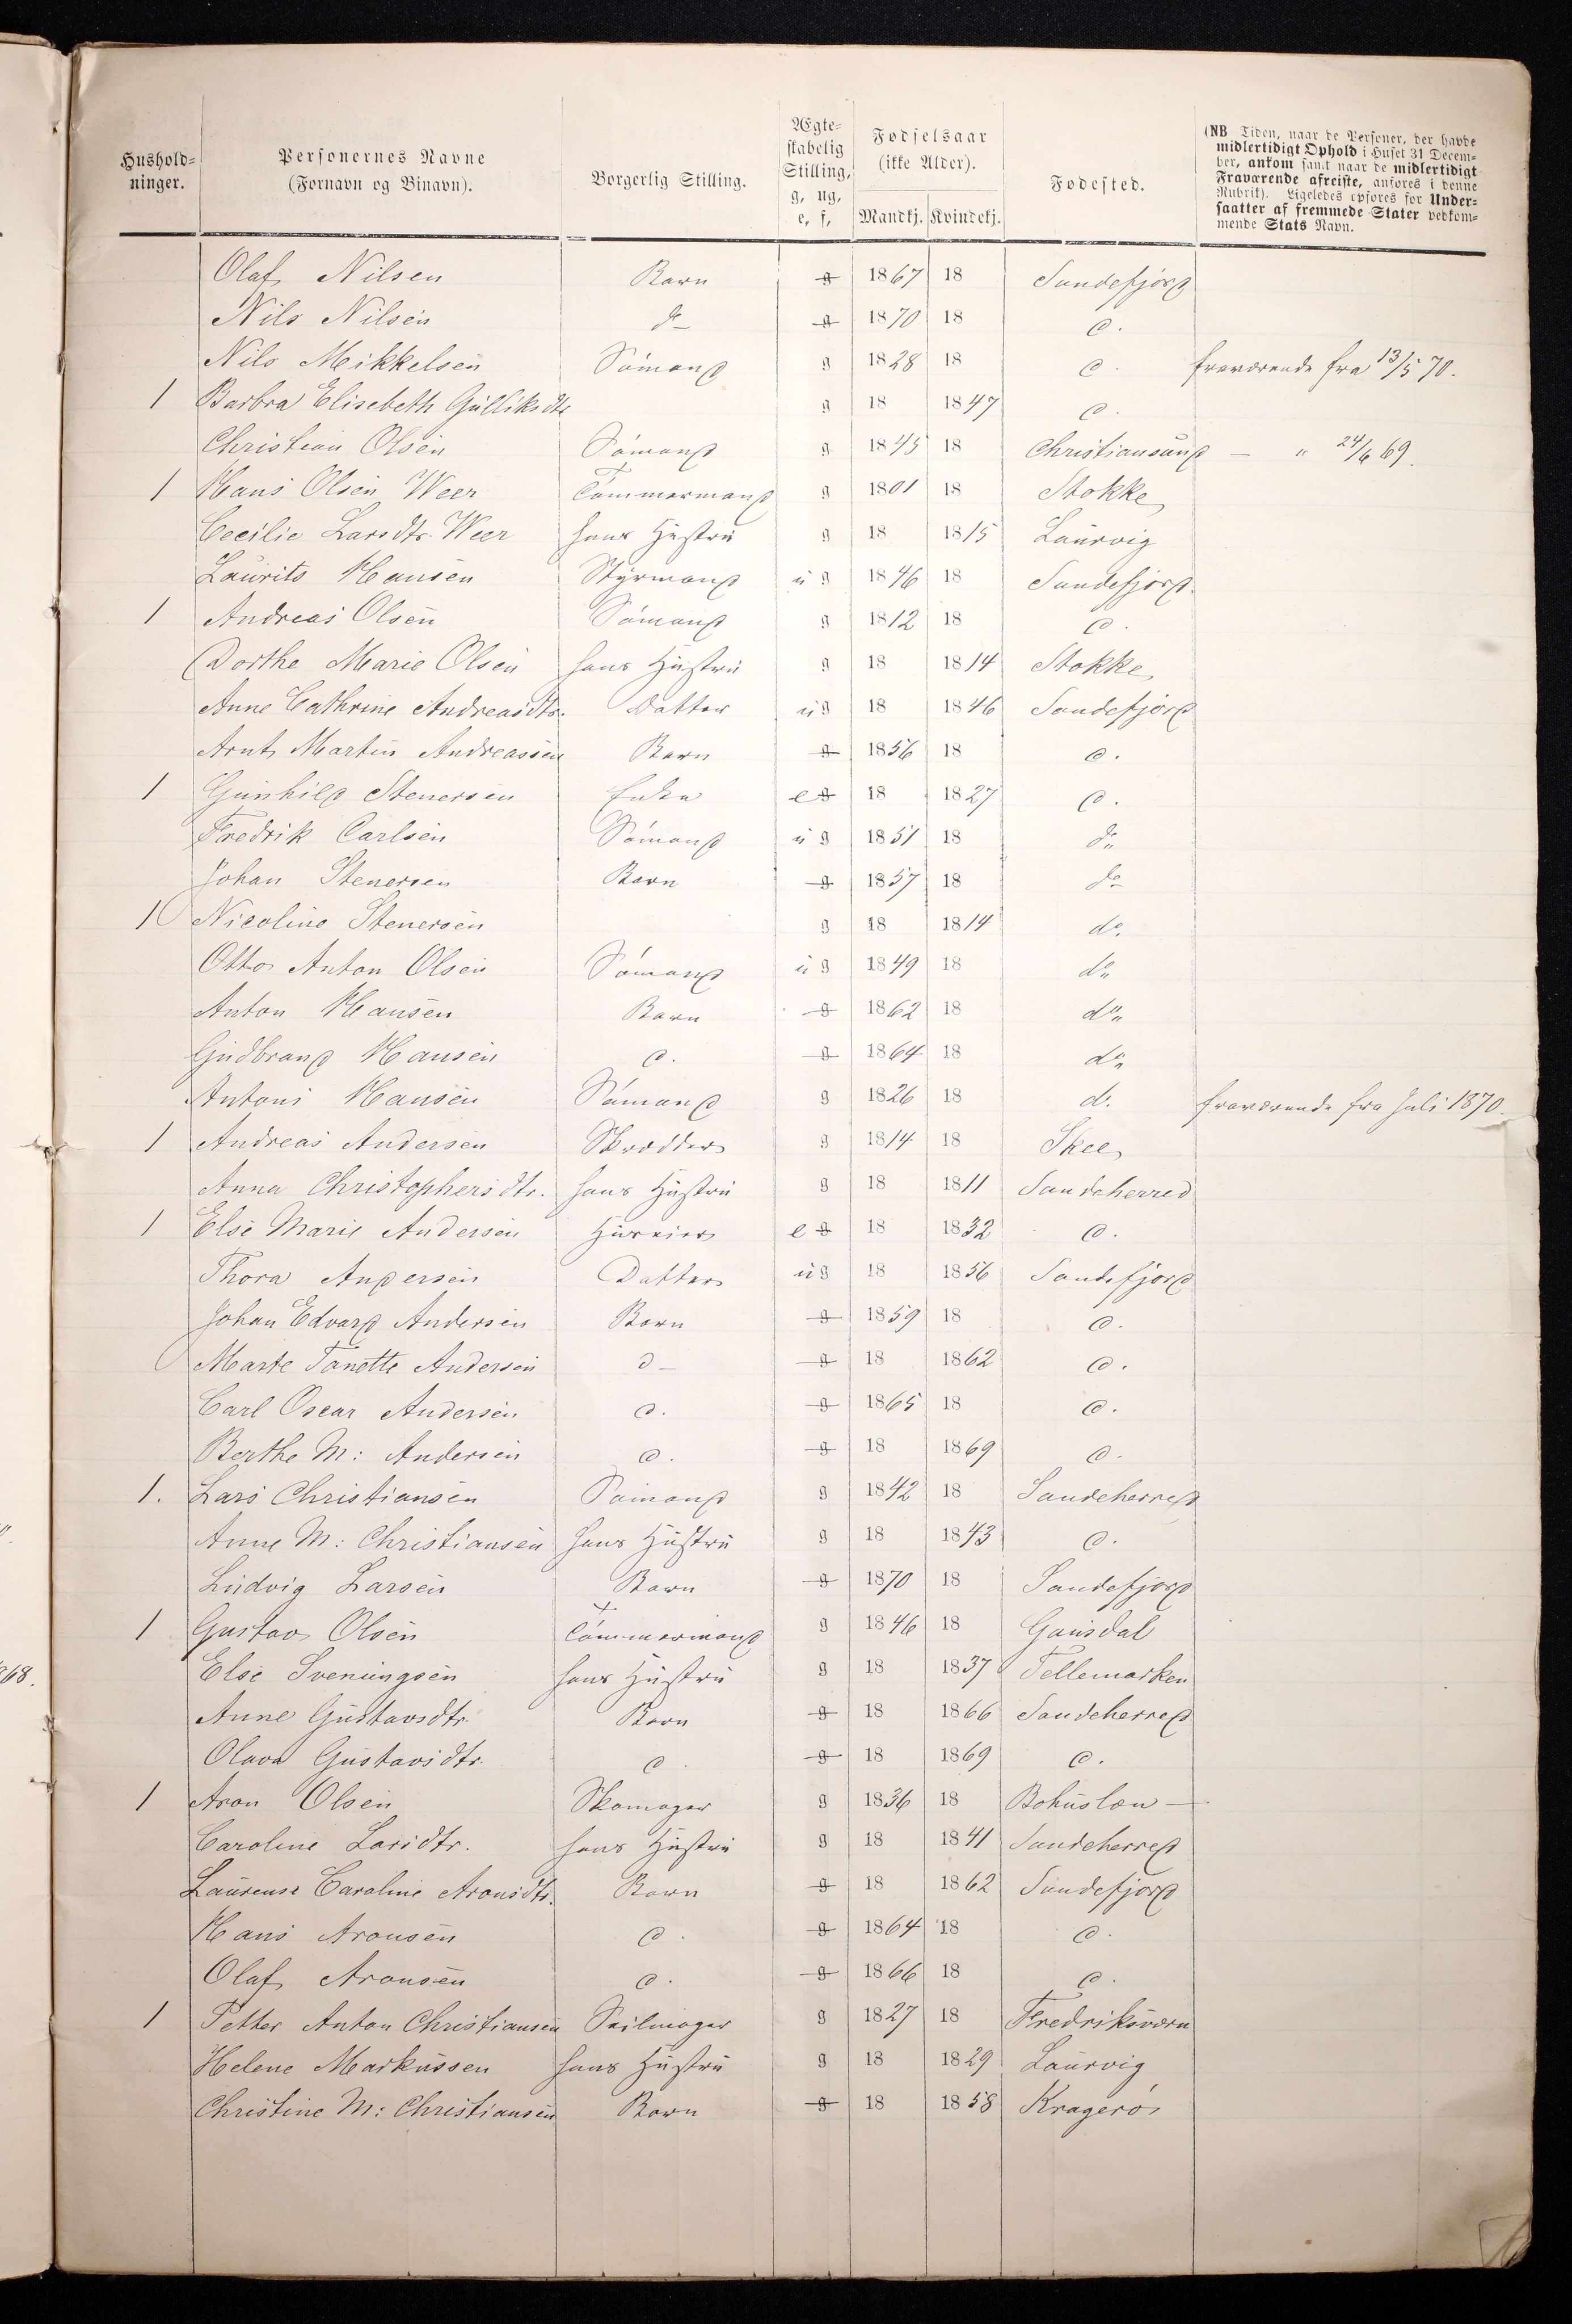 Hushold-
ninger.
Personernes Navne
(Fornavn og Binavn).
Borgerlig Stilling.
Ægte-
skabelig
Stilling,
g, ug,
e, f,
Fødselsaar
(ikke Alder).
Mandkj. Kvindekj.
Fødested.
(NB Tiden, naar de Personer, der havde
midlertidigt Ophold i Huset 31 Decem-
ber, ankom samt naar de midlertidigt
Fraværende afreiste, anføres i denne
Rubrik). Ligeledes opføres for Under-
saatter af fremmede Stater vedkom-
mende Stats Navn.
Olaf Nilsen Barn g 1867 18 Sandefjord
Nils Nilsen do g 1870 18 d.
Nils Mikkelsen Sömand g 1828 18 d. fraværende fra 13/5 70.
1 Barbra Elisebeth Gulliksdtr g 18 1847 d.
Christian Olsen Sömand g 1845 18 Christiansund — " 24/6 69.
1 Hans Olsen Weer Tömmermand g 1801 18 Stokke
Cecilie Larsdtr. Weer hans Hustru g 18 1815 Laurvig
Laurits Hansen Styrmand u g 1846 18 Sandefjord.
1 Andreas Olsen Sömand g 1812 18 d.
Dorthe Marie Olsen hans Hustru g 18 1814 Stokke
Anne Cathrine Andreasdtr. Datter u g 18 1846 Sandefjord
Arnt Martin Andreassen Barn g 1856 18 d.
1 Gunhild Stenersen Enke e g 18 1827 d.
Fredrik Carlsen Sömand u g 1851 18 do
Johan Stenersen Barn g 1857 18 do
1 Nicoline Stenersen g 18 1814 do.
Otto Anton Olsen Sömand u g 1849 18 do
Anton Hansen Barn g 1862 18 do
Gudbrand Hansen d. g 1864 18 do
Antoni Hansen Sömand g 1826 18 d. fraværende fra Juli 1870.
1 Andreas Andersen Skrædder g 1814 18 Skee
Anna Christophersdtr. hans Hustru g 18 1811 Sandeherred
1 Else Marie Andersen Huseier e g 18 1832 d.
Thora Andersen Datter u g 18 1856 Sandefjord
Johan Edvard Andersen Barn g 1859 18 d.
Marte Tanette Andersen d — g 18 1862 d.
Carl Oscar Andersen d. g 1865 18 d.
Berthe M: Andersen d. g 18 1869 d.
1. Lars Christiansen Sömand g 1842 18 Sandeherred
Anne M: Christiansen hans Hustru g 18 1843 d.
Ludvig Larsen Barn g 1870 18 Sandefjord
1 Gustav Olsen Tömmermand g 1846 18 Gausdal
Else Sveningsen hans Hustru g 18 1837 Tellemarken
Anne Gustavsdtr. Barn g 18 1866 Sandeherred
Olava Gustavsdtr. d. g 18 1869 d.
1 Aron Olsen Skomager g 1836 18 Bohuslæn —
Caroline Larsdtr. hans Hustru g 18 1841 Sandeherred
Laurense Caroline Aronsdtr. Barn g 18 1862 Sandefjord
Hans Aronsen d. g 1864 18 d.
Olaf Aronsen d. g 1866 18 d.
1 Petter Anton Christiansen Seilmager g 1827 18 Fredriksværn
Helene Markussen hans Hustru g 18 1829 Laurvig
Christine M: Christiansen Barn g 18 1858 Kragerö